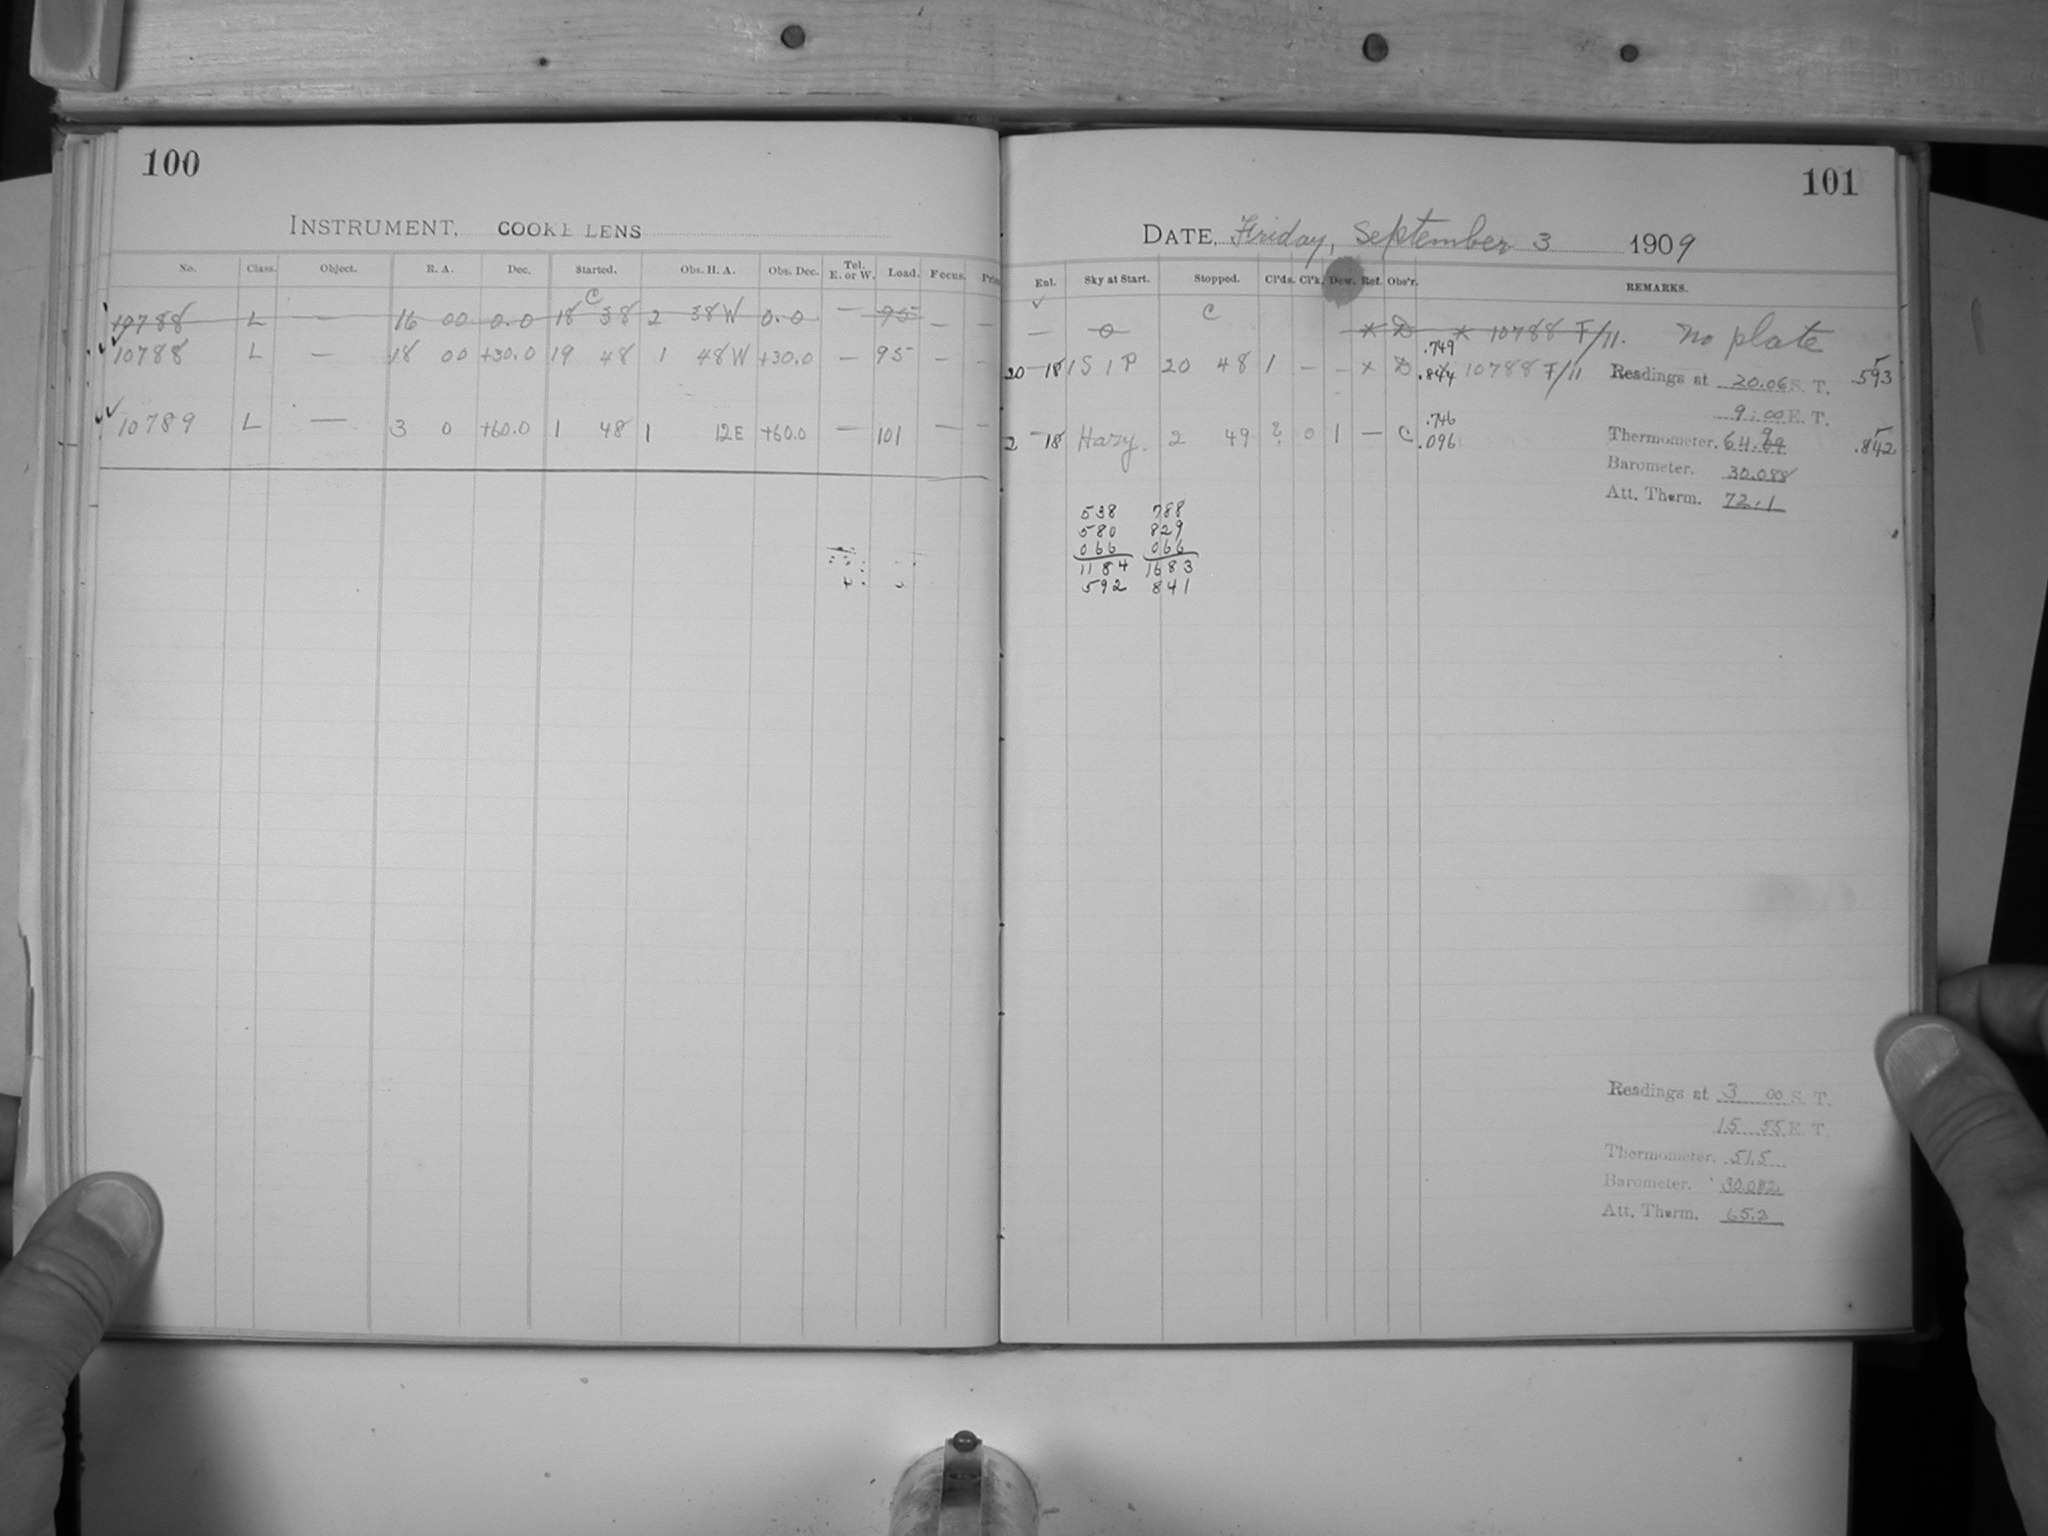 100
INSTRUMENT, COOKE LENS
No. Class. Object. R. A. Dec. Started. Obs. H. A. Obs. Dec. Tel. E. or W. Load. Focus.
C
10788 L — 16 00 0.0 18 38 2 38 W 0.0 — 95 — —
10788 L — 18 00 +30.0 19 48 1 48 W +30.0 — 95 — —
10789 L — 3 0 +60.0 1 48 1 12 E +60.0 — 101 — —
101
DATE, Friday, September 3 1909
Enl. Sky at Start. Stopped. Cl'ds. Cl'k. Dew. Ref. Obs'r. REMARKS.
C
— 0 × D × 10788 F/11. no plate
.749
20—18 1 S 1 P 20 48 1 — — × D .844 10788 F/11 Readings at 20.06 S. T. .593
9:00 E. T.
.746
2—18 Hazy. 2 49 2 0 1 — C .096 Thermometer. 64.9 .842
Barometer. 30.088
Att. Therm. 72.1
538 788
580 829
066 066
1184 1683
592 841
Readings at 3 00 S. T.
15 55 E. T.
Thermometer. 51.5
Barometer. 30.082
Att. Therm. 65.2